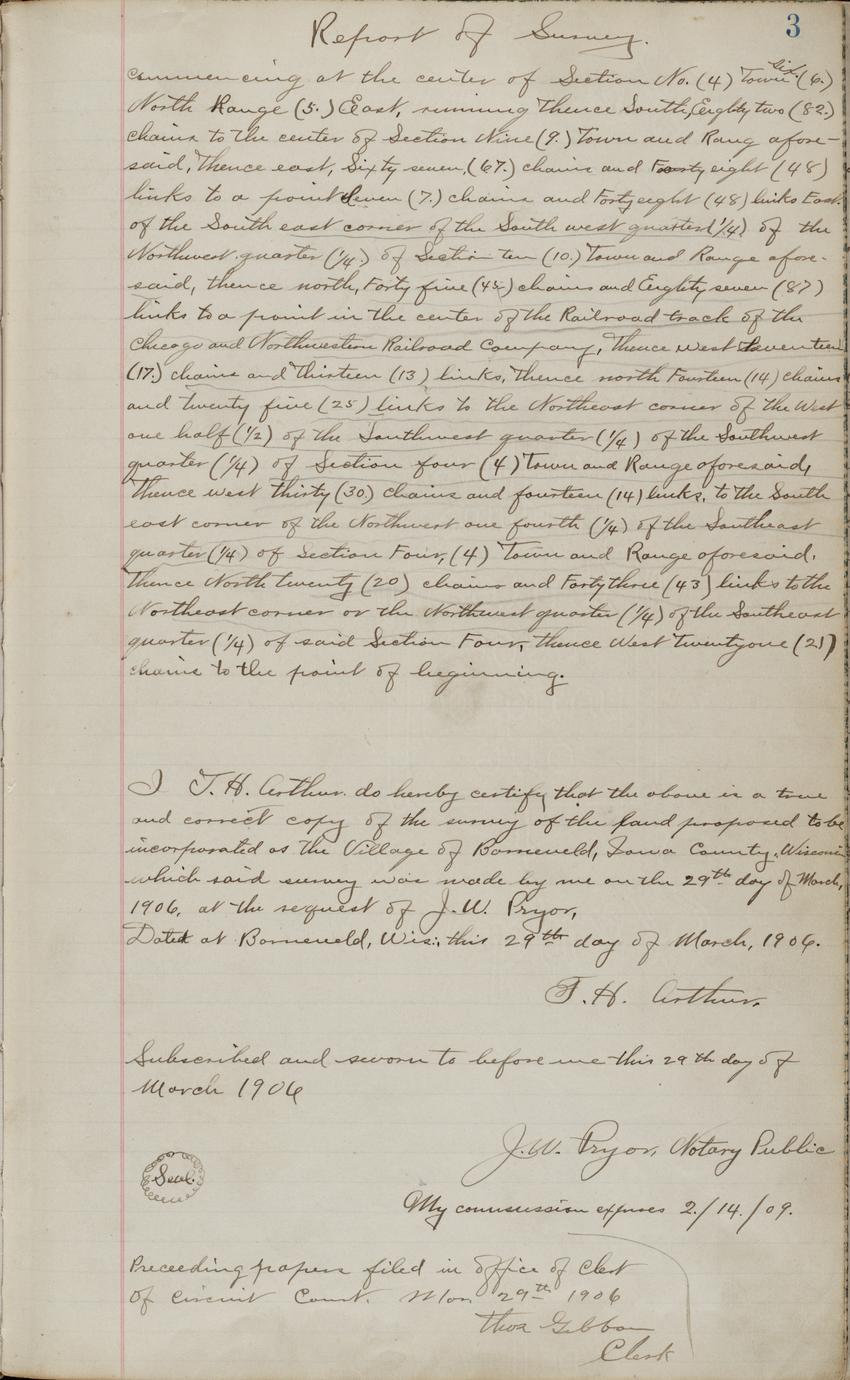 3
Report of Survey.
Commencing at the center of Section No. (4) Town Six (6.)
North Range (5.) East, running thence South, Eighty two (82.)
chains to the center of Section Nine (9.) Town and Rang afore-
said, thence east, Sixty seven, (67.) chains and Forty eight (48)
links to a point Seven (7.) chains and Forty eight (48) links East.
of the South east corner of the South west quarter (1/4) of the
Northwest quarter (1/4.) of Section ten (10.) Town and Range afore-
said, thence north, Forty five (45) chains and Eighty seven (87)
links to a point in the center of the Railroad track of the
Chicago and Northwestern Railroad Company, thence west Seventeen
(17.) chains and Thirteen (13) links, thence north Fourteen (14) chains
and twenty five (25) links to the Northeast corner of the West
one half (1/2) of the Southwest quarter (1/4) of the Southwest
quarter (1/4) of Section four (4) Town and Range aforesaid,
thence west thirty (30) chains and fourteen (14) links, to the South
east corner of the Northwest one fourth (1/4) of the Southeast
quarter (1/4) of Section Four, (4) Town and Range aforesaid.
thence North twenty (20) chains and Forty three (43) links to the
Northeast corner or the Northwest quarter (1/4) of the Southeast
quarter (1/4) of said Section Four, thence West twenty one (21)
chains to the point of beginning.
I T. H. Arthur. do hereby certify that the above is a true
and correct copy of the survey of the land proposed to be
incorporated as the Village of Barneveld, Iowa County, Wisconsin
which said survey was made by me on the 29th day of March,
1906, at the request of J. W. Pryor,
Dated at Barneveld, Wis., this 29th day of March, 1906.
T. H. Arthur.
Subscribed and sworn to before me this 29th day of
March 1906
J. W. Pryor, Notary Public
Seal.
My commission expires 2./14./09.
Preceeding papers filed in office of Clerk
of Circuit Court. Mar 29th 1906
Thos Gibbon
Clerk